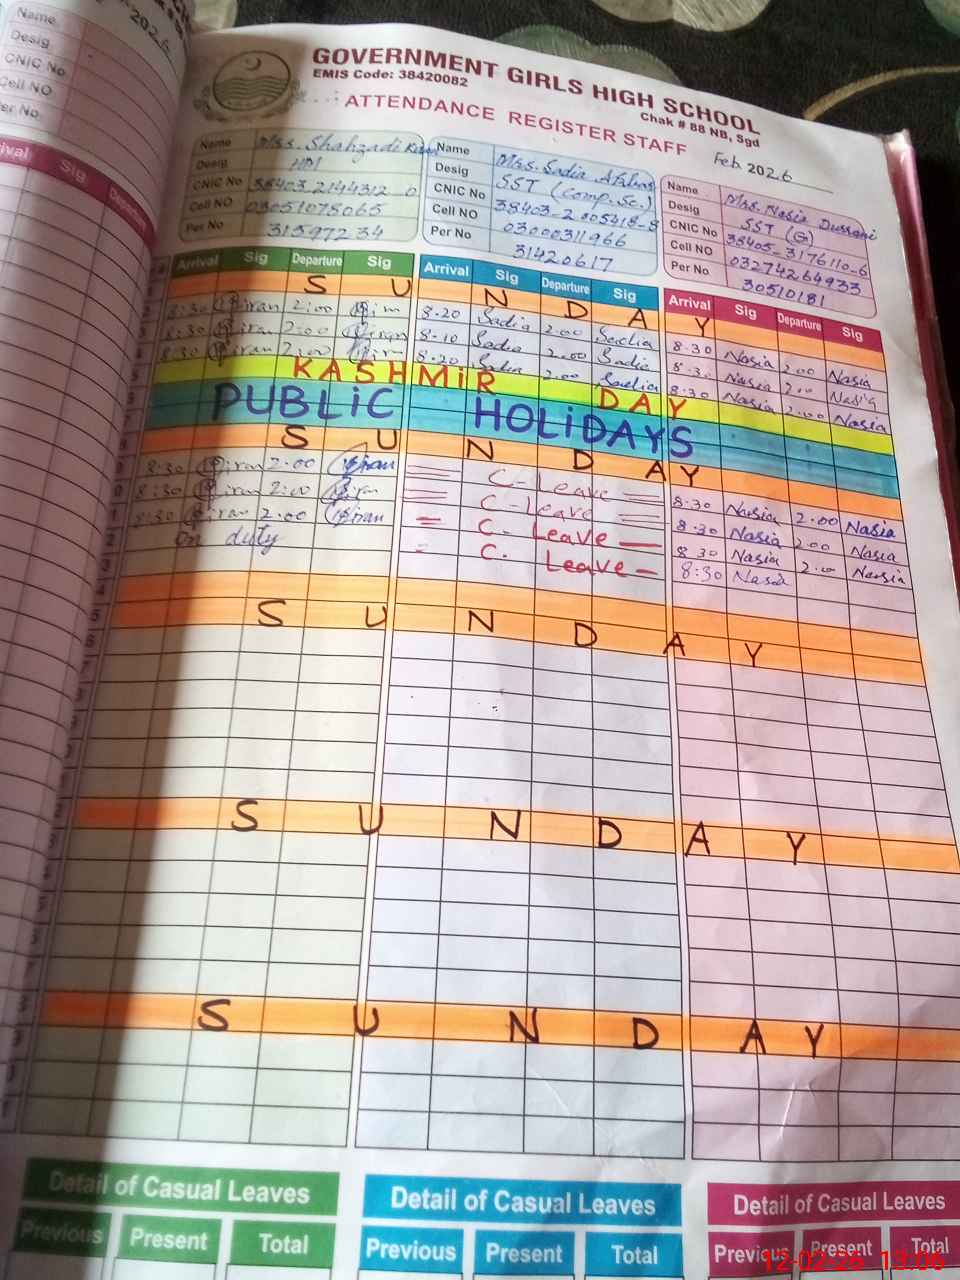 2026
Name
Desig
CNIC No
Cell NO
Per No
Sig
Departure
GOVERNMENT GIRLS HIGH SCHOOL
EMIS Code: 38420082
Chak # 88 NB, Sgd
ATTENDANCE REGISTER STAFF
Feb. 2026
Name Mrs. Shahzadi
Desig HM
CNIC No
Cell NO 03051078065
Per No 31597234
Name Mrs. Sadia
Desig SST (Comp. Sc.)
CNIC No 38403-2005418-8
Cell NO 03000311966
Per No 31420617
Name Mrs. Nasia Dussani
Desig SST (G)
CNIC No 38405-3176110-6
Cell NO 03274264933
Per No 30510181
Arrival Sig Departure Sig Arrival Sig Departure Sig Arrival Sig Departure Sig
SUNDAY
8:30 Kiran 2:00 8.20 Sadia 2.00 Sadia 8.30 Nasia 2.00 Nasia
8:30 Kiran 2:00 Kiran 8.10 Sadia 2.00 Sadia 8.30 Nasia 2.00 Nasia
8:30 Kiran 2:00 8.20 Sadia 2.00 Sadia 8:30 Nasia 2.00 Nasia
KASHMiR DAY
PUBLiC HOLiDAYS
SUNDAY
8.30 Kiran 2.00 Kiran C-Leave 8:30 Nasia 2.00 Nasia
8:30 Kiran 2:00 C-Leave 8.30 Nasia 2.00 Nasia
8:30 Kiran 2:00 Kiran C- Leave 8.30 Nasia 2.00 Nasia
On duty C. Leave 8:30 Nasia
SUNDAY
SUNDAY
SUNDAY
Detail of Casual Leaves Detail of Casual Leaves Detail of Casual Leaves
Previous Present Total Previous Present Total Previous Present Total